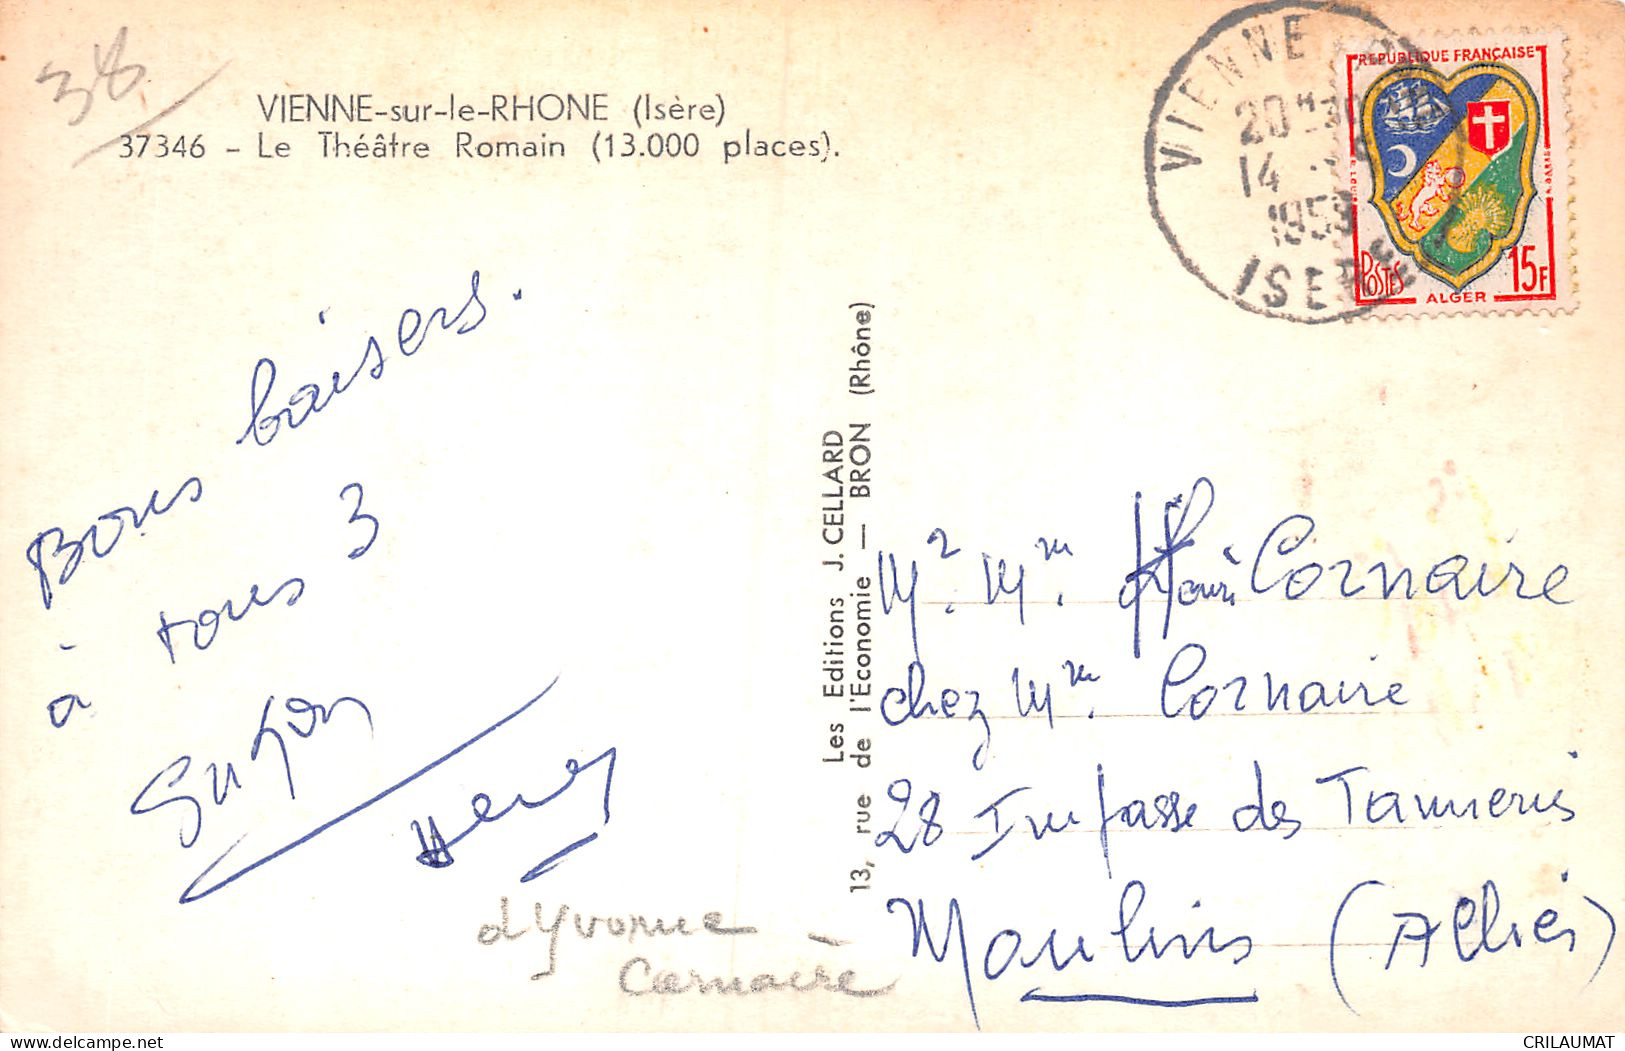 38
VIENNE-sur-le-RHONE (Isère)
37346 - Le Théâtre Romain (13.000 places).
Bons baisers.
à tous 3
Suzon
Henry
d'Yvonne
Cornaire
Les Editions J. CELLARD
13, rue de l'Economie — BRON (Rhône)
VIENNE
20H30
14
1959
ISERE
REPUBLIQUE FRANÇAISE
POSTES
ALGER
15F
Mr. Mme. Henri Cornaire
chez Mme. Cornaire
28 Impasse des Tanneries
Moulins (Allier)
CRILAUMAT